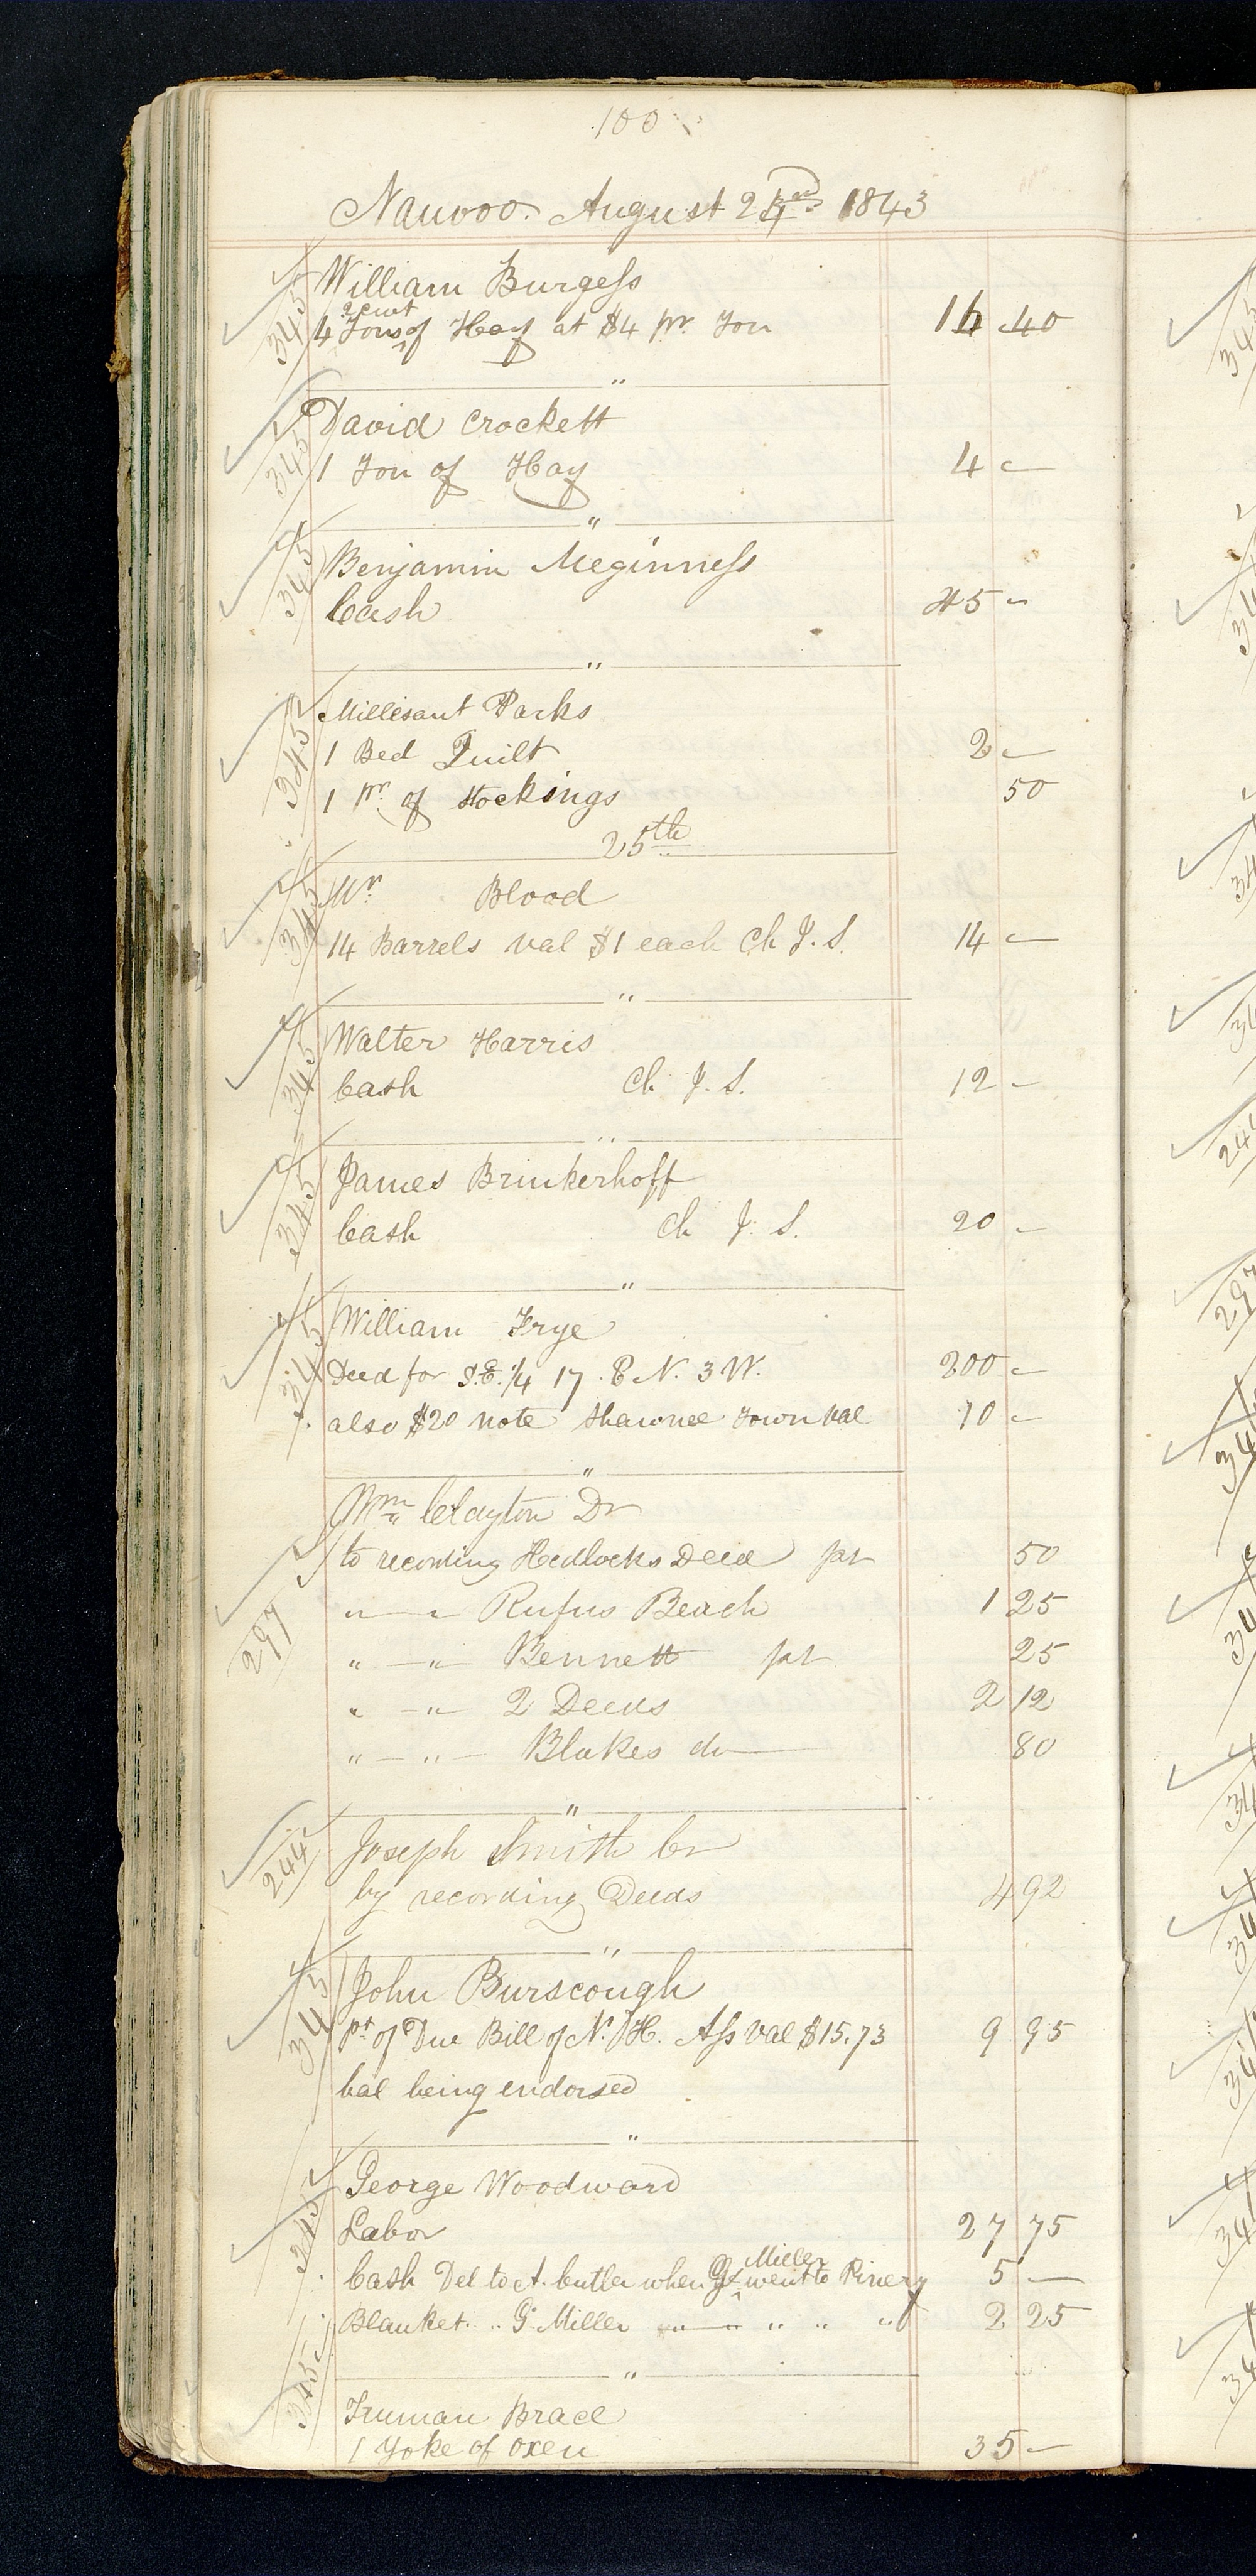 100
Nauvoo. August 24 1843
345 William Burgess
2 cwt
4 Tons of Hay at $4 pr. Ton 16 40
"
345 David Crockett
1 Ton of Hay 4 —
"
345 Benjamin Meginness
Cash 45 -
"
345 Millisant Parks
1 Bed Quilt 2 —
1 pr. of stockings 50
25th
345 Mr. Blood
14 Barrels val $1 each Ch J. S. 14 —
"
345 Walter Harris
Cash Ch J. S. 12 -
"
345 James Brinkerhoff
Cash Ch J. S. 20 -
"
345 William Frye
Deed for S.E. 1/4 17. 8 N. 3 W. 200 —
also $20 note Shawnee Town val 10 -
"
Wm Clayton Dr
297 to recording Hedlocks Deed pr 50
" — " Rufus Beach 1 25
" — " Bennett pr 25
" — " 2 Deeds 2 12
" — " — Blakes do — 80
"
244 Joseph Smith Cr
by recording Deeds 4 92
"
345 John Burscough
pt of Due Bill of N. H. Ass val $15.73 9 95
bal being endorsed
"
345 George Woodward
Labor 27 75
Miller
Cash Del to A. Cutler when G went to Pinery 5 —
Blanket " G. Miller " " " " 2 25
"
345 Truman Brace
1 Yoke of Oxen 35 —